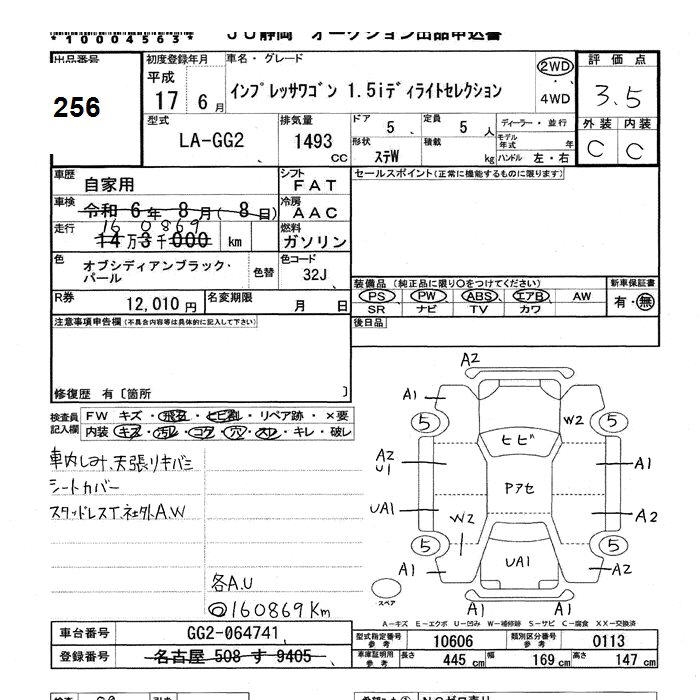 *10004563*
JU静岡 オークション出品申込書
出品番号
256
初度登録年月
平成
17 6月
車名・グレード
インプレッサワゴン 1.5iディライトセレクション
2WD
4WD
評価点
3.5
外装 内装
C C
型式
LA-GG2
排気量
1493
CC
ドア
5
定員
5 人
形状
ステW
積載
kg
ディーラー・並行
モデル年式 年
ハンドル 左・右
車歴
自家用
シフト
FAT
車検
令和 6年 8月( 8日)
冷房
AAC
走行
160869
14万3千000 km
燃料
ガソリン
色
オブシディアンブラック・パール
色替
色コード
32J
R券
12,010 円
名変期限
月 日
セールスポイント(正常に機能するものに限ります)
装備品(純正品に限り○をつけてください)
PS PW ABS エアB AW
SR ナビ TV カワ
新車保証書
有・無
後日品
注意事項申告欄(不具合内容等は具体的に記入して下さい)
修復歴 有〔箇所 〕
検査員記入欄
FW キズ・飛石・ヒビ割・リペア跡・×要
内装 キズ・汚レ・コゲ・穴・スレ・キレ・破レ
車内しみ、天張りキバミ
シートカバー
スタッドレスT、社外A.W
各A.U
◎160869Km
A2
A1
5
W2
5
ヒビ
A2
U1
A1
Pアセ
UA1
W2
A2
5
UA1
5
A1
A2
A1
A1
スペア
A-キズ E-エクボ U-凹み W-補修跡 S-サビ C-腐食 XX-交換済
車台番号
GG2-064741
登録番号
名古屋 508 す 9405
型式指定番号
参考
10606
類別区分番号
参考
0113
車庫証明用
参考
長さ
445 cm
幅
169 cm
高さ
147 cm